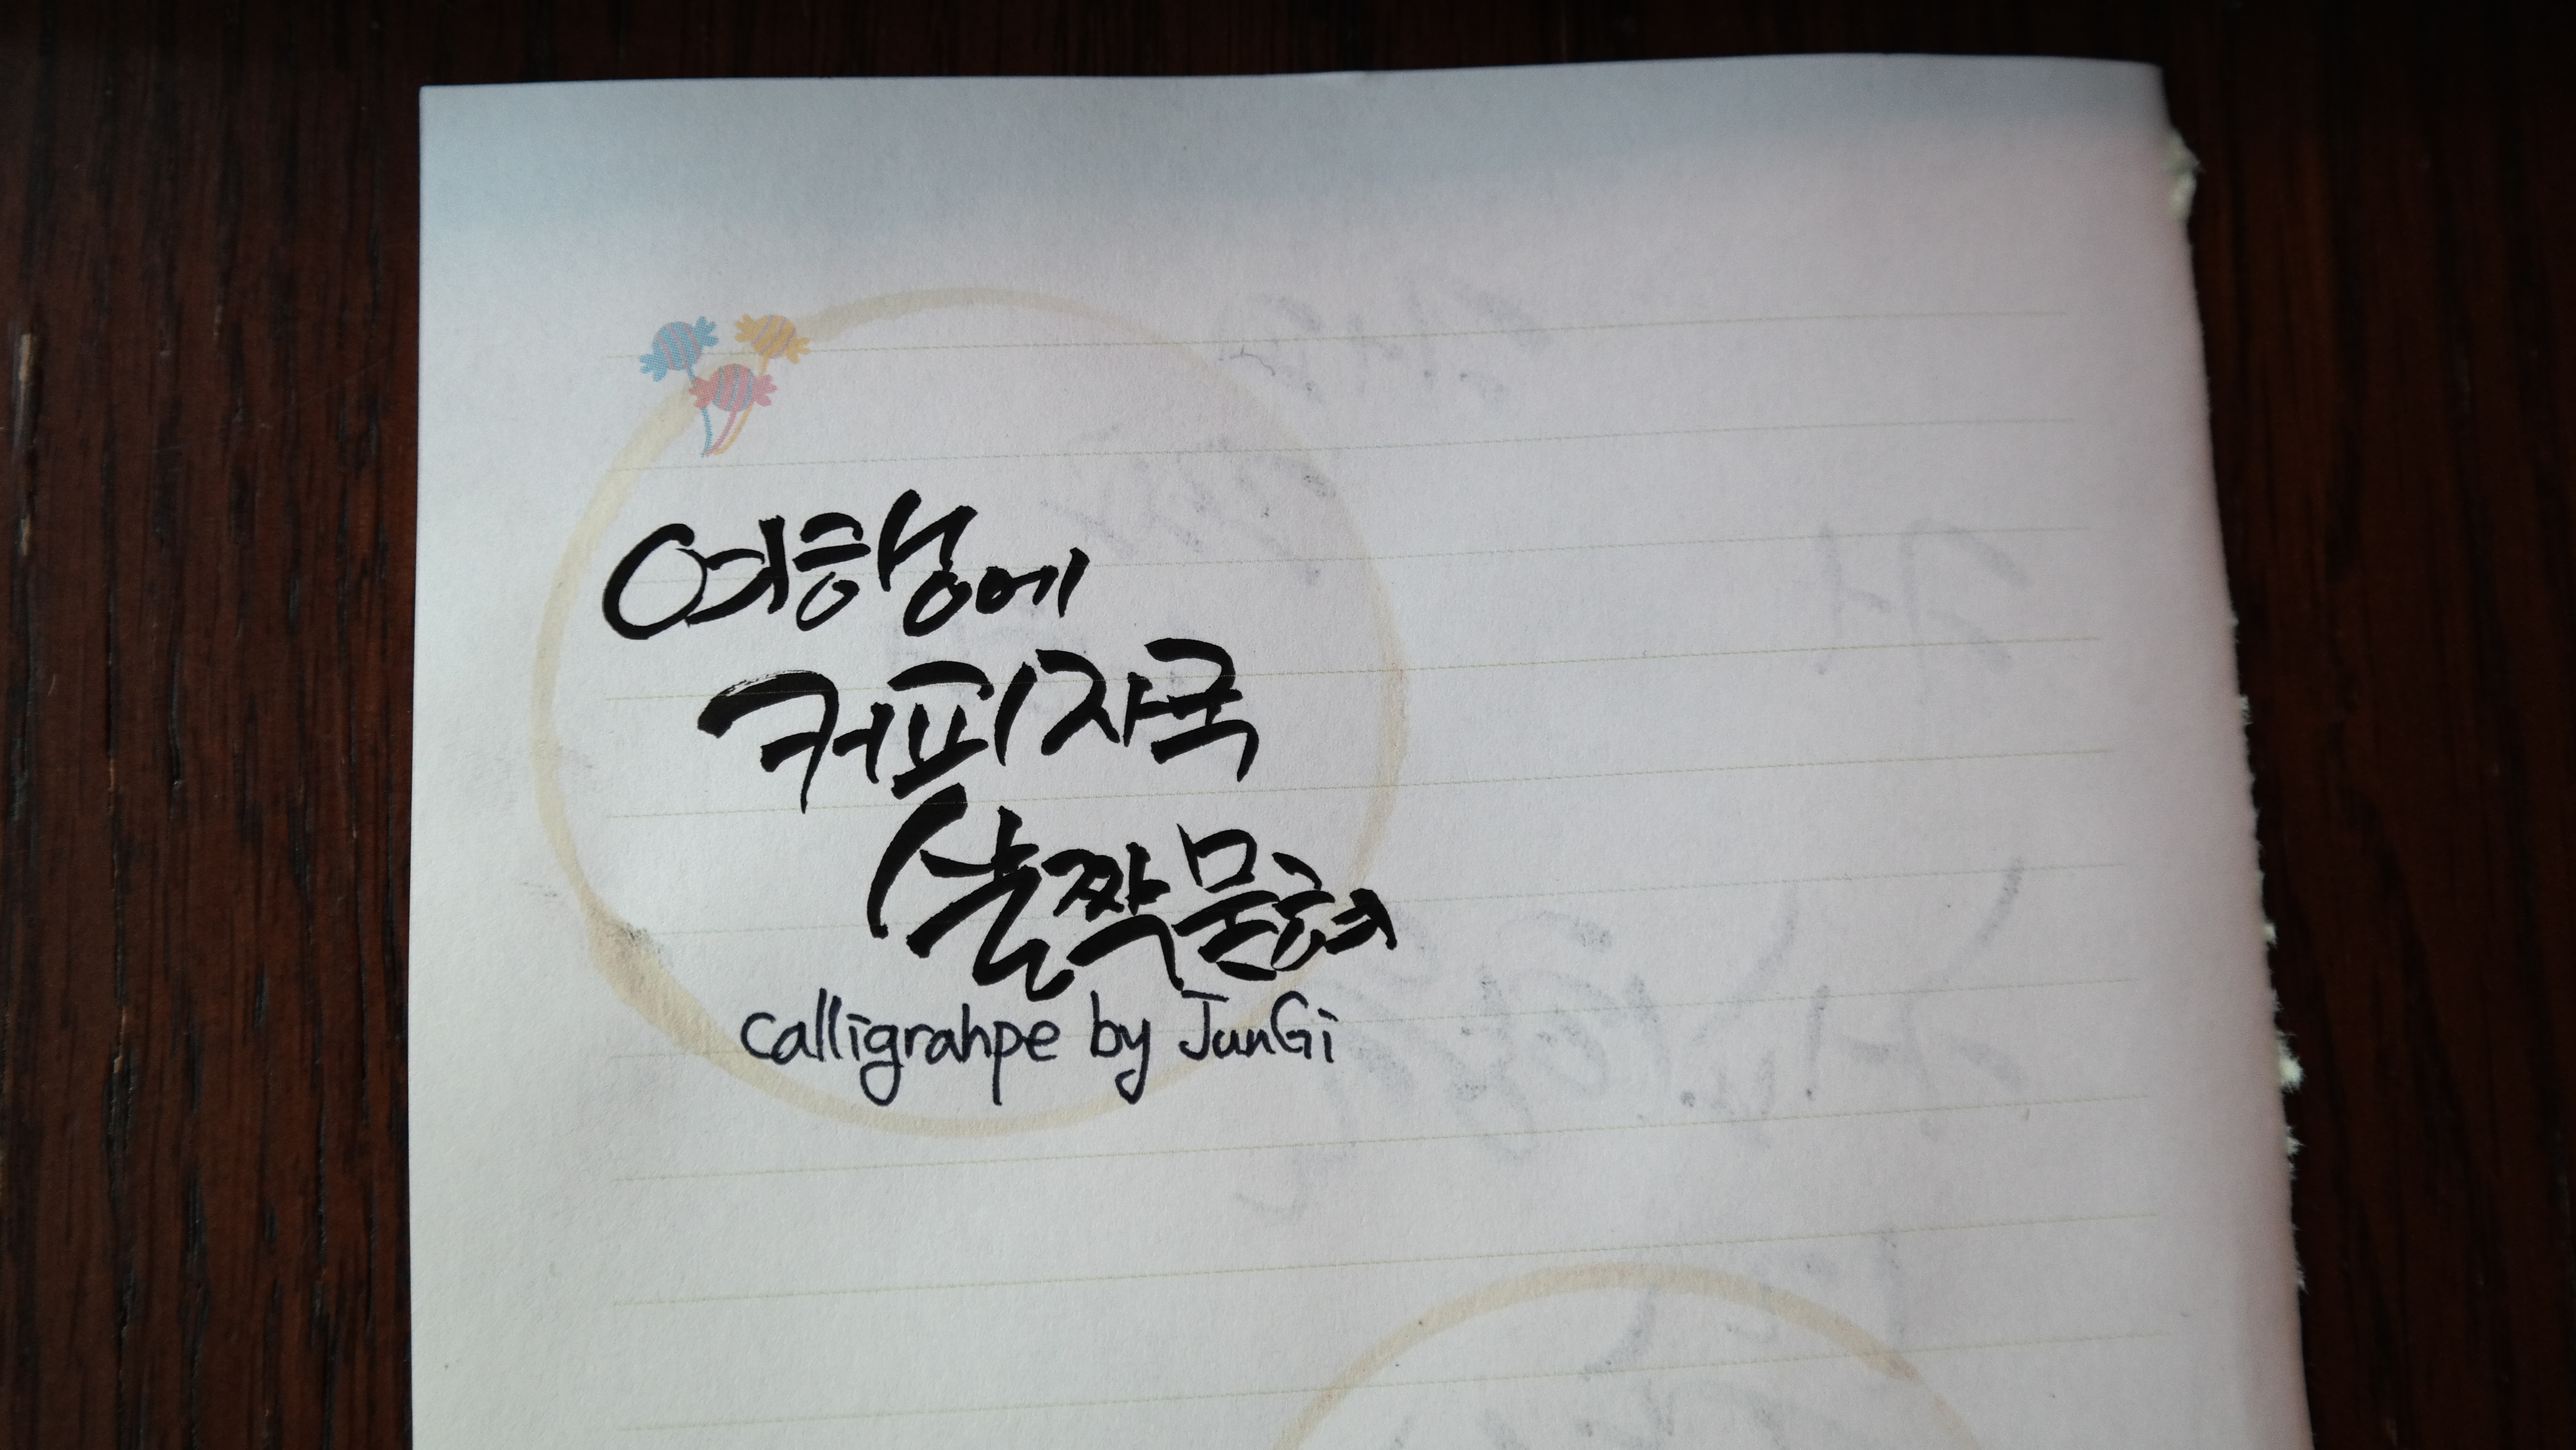 여행에
커피자국
살짝묻혀
calligrahpe by JunGi